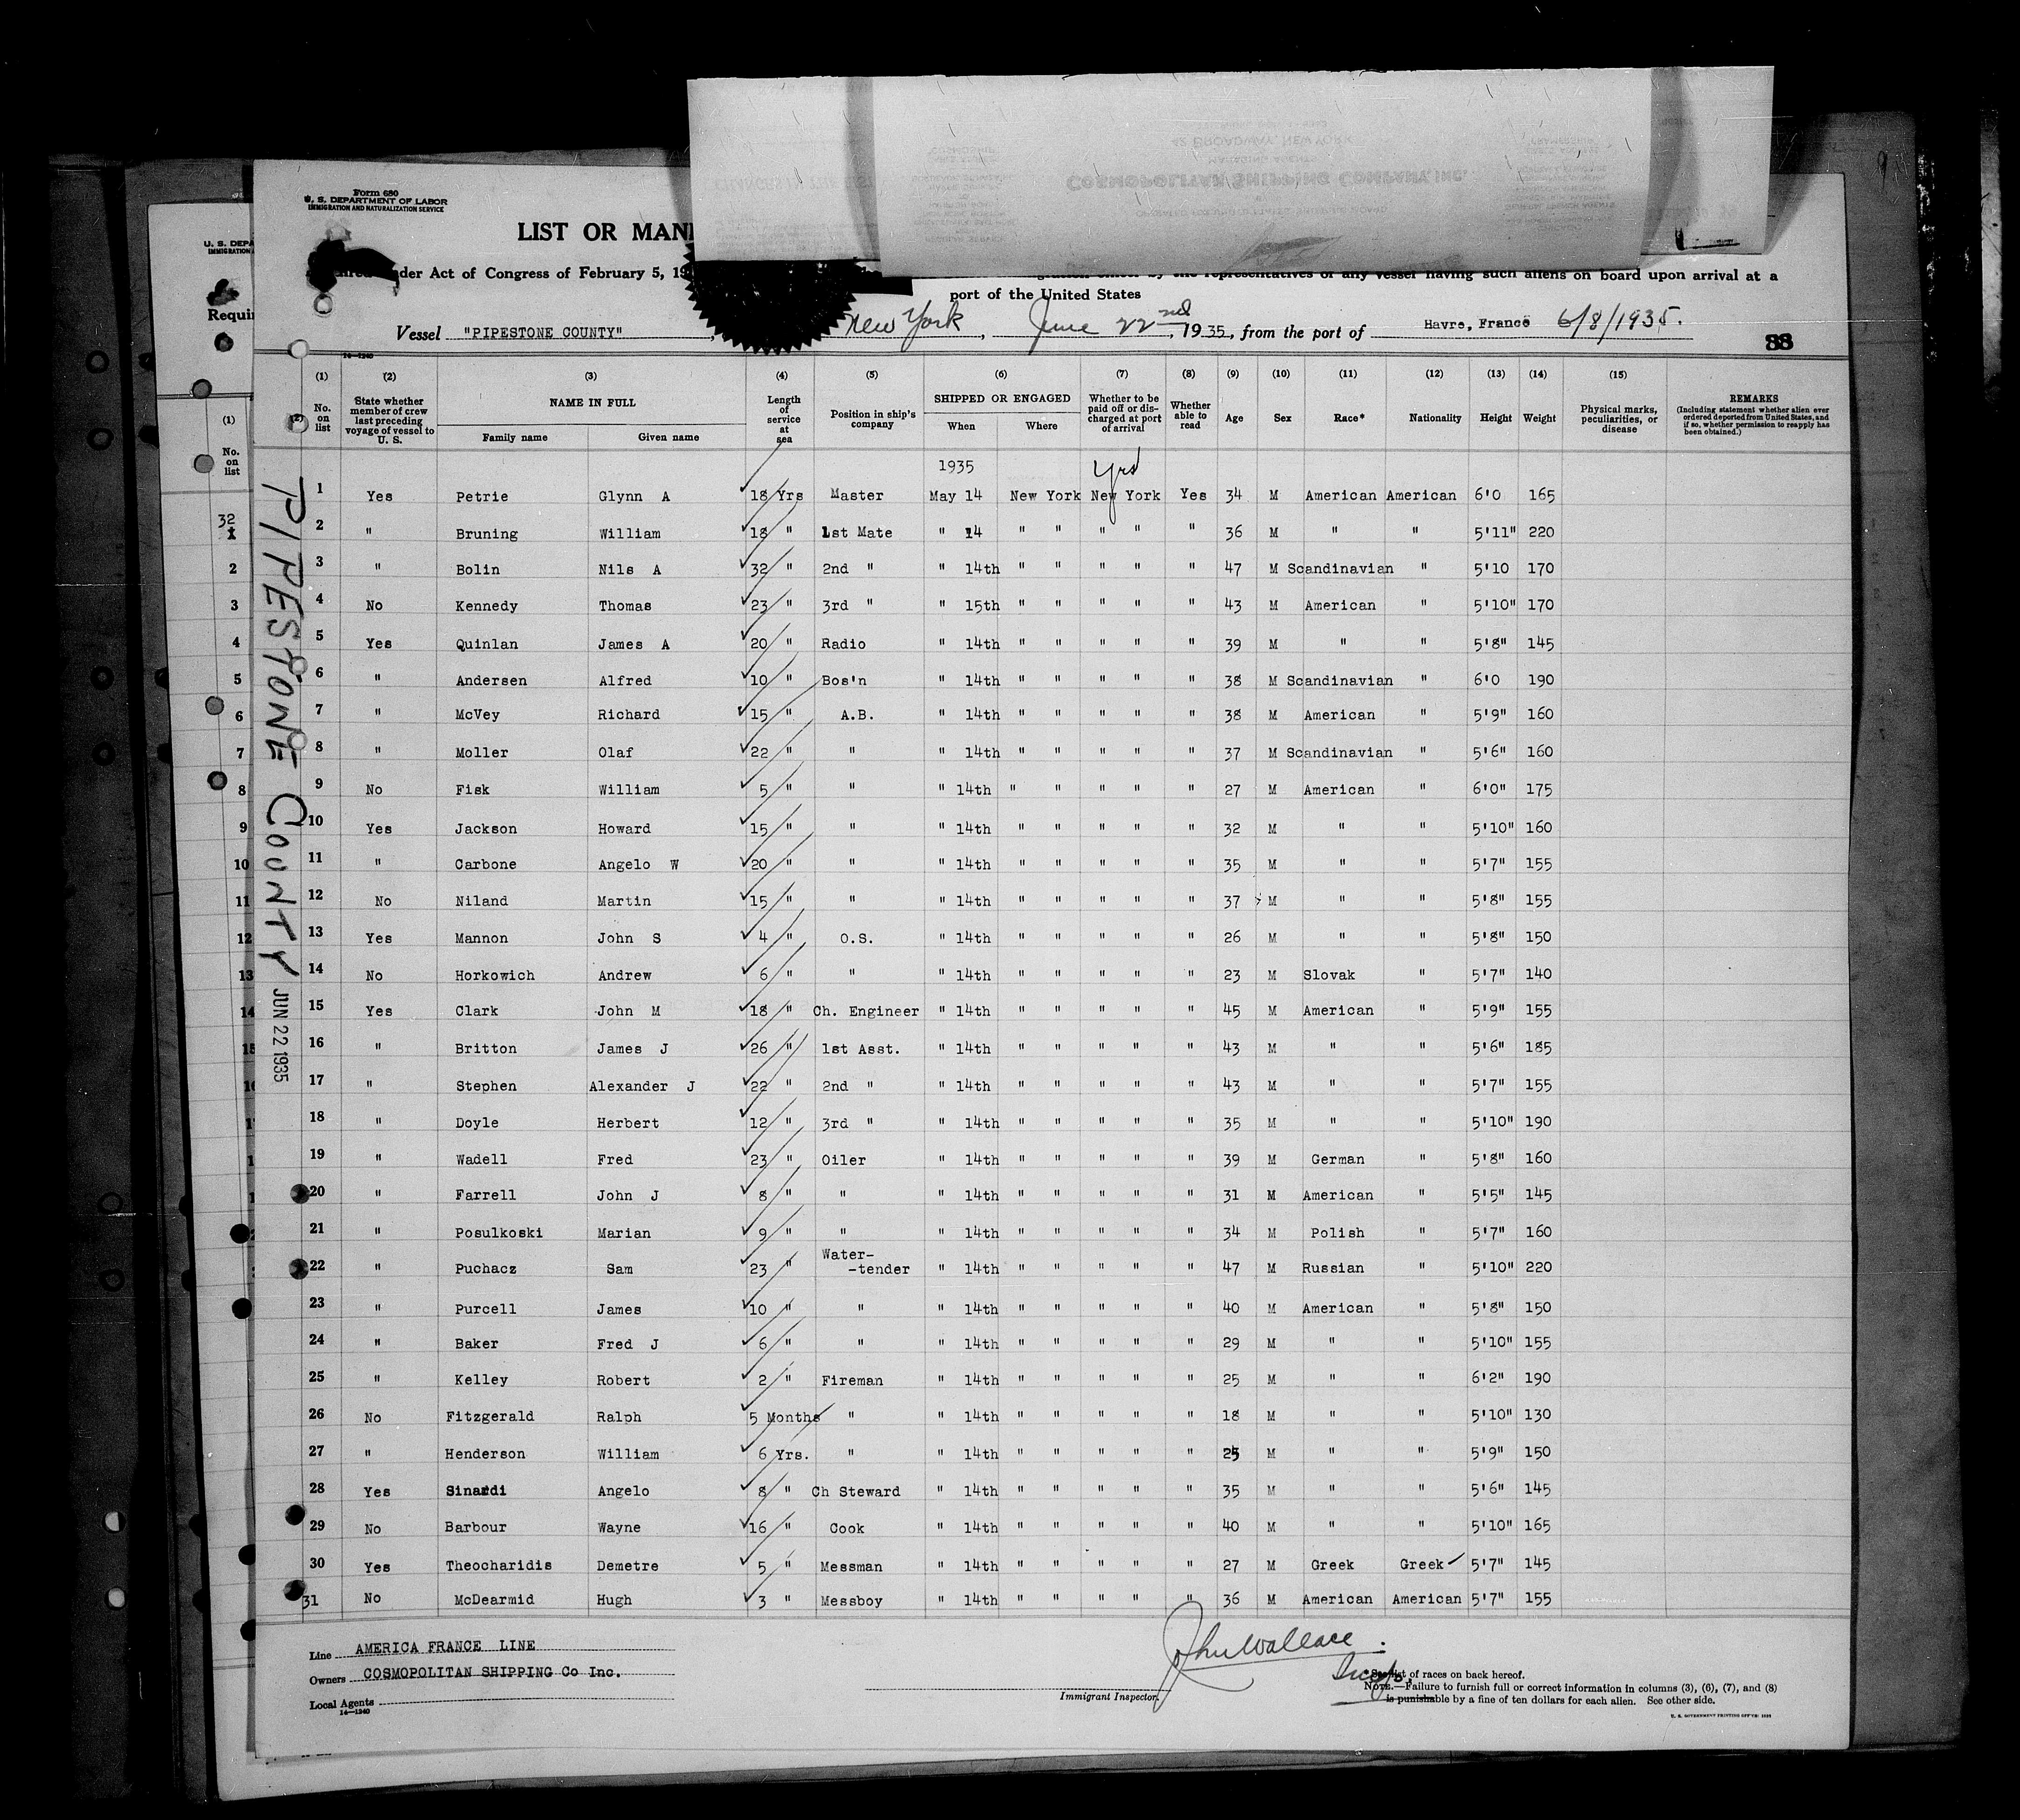 Form 680
U. S. DEPARTMENT OF LABOR
IMMIGRATION AND NATURALIZATION SERVICE
LIST OR MAN
under Act of Congress of February 5, 19
by the representatives of any vessel having such aliens on board upon arrival at a
port of the United States
Vessel "PIPESTONE COUNTY", New York, June 22nd, 1935, from the port of Havre, France 6/8/1935.
88
COSMOPOLITAN SHIPPING COMPANY, INC.
MANAGING AGENTS
42 BROADWAY, NEW YORK
U. S. DEPA
IMMIGRATION
Requi
(1) (2) (3) (4) (5) (6) (7) (8) (9) (10) (11) (12) (13) (14) (15)
No. on list
State whether member of crew last preceding voyage of vessel to U. S.
NAME IN FULL
Family name Given name
Length of service at sea
Position in ship's company
SHIPPED OR ENGAGED
When Where
Whether to be paid off or discharged at port of arrival
Whether able to read
Age Sex Race* Nationality Height Weight
Physical marks, peculiarities, or disease
REMARKS
(Including statement whether alien ever ordered deported from United States, and if so, whether permission to reapply has been obtained.)
1935 yrs
1 Yes Petrie Glynn A 18 Yrs Master May 14 New York New York Yes 34 M American American 6'0 165
2 " Bruning William 18 " 1st Mate " 14 " " " " " 36 M " " 5'11" 220
3 " Bolin Nils A 32 " 2nd " " 14th " " " " " 47 M Scandinavian " 5'10 170
4 No Kennedy Thomas 23 " 3rd " " 15th " " " " " 43 M American " 5'10" 170
5 Yes Quinlan James A 20 " Radio " 14th " " " " " 39 M " " 5'8" 145
6 " Andersen Alfred 10 " Bos'n " 14th " " " " " 38 M Scandinavian " 6'0 190
7 " McVey Richard 15 " A.B. " 14th " " " " " 38 M American " 5'9" 160
8 " Moller Olaf 22 " " " 14th " " " " " 37 M Scandinavian " 5'6" 160
9 No Fisk William 5 " " " 14th " " " " " 27 M American " 6'0" 175
10 Yes Jackson Howard 15 " " " 14th " " " " " 32 M " " 5'10" 160
11 " Carbone Angelo W 20 " " " 14th " " " " " 35 M " " 5'7" 155
12 No Niland Martin 15 " " " 14th " " " " " 37 M " " 5'8" 155
13 Yes Mannon John S 4 " O.S. " 14th " " " " " 26 M " " 5'8" 150
14 No Horkowich Andrew 6 " " " 14th " " " " " 23 M Slovak " 5'7" 140
15 Yes Clark John M 18 " Ch. Engineer " 14th " " " " " 45 M American " 5'9" 155
16 " Britton James J 26 " 1st Asst. " 14th " " " " " 43 M " " 5'6" 185
17 " Stephen Alexander J 22 " 2nd " " 14th " " " " " 43 M " " 5'7" 155
18 " Doyle Herbert 12 " 3rd " " 14th " " " " " 35 M " " 5'10" 190
19 " Wadell Fred 23 " Oiler " 14th " " " " " 39 M German " 5'8" 160
20 " Farrell John J 8 " " " 14th " " " " " 31 M American " 5'5" 145
21 " Posulkoski Marian 9 " " " 14th " " " " " 34 M Polish " 5'7" 160
22 " Puchacz Sam 23 " Water--tender " 14th " " " " " 47 M Russian " 5'10" 220
23 " Purcell James 10 " " " 14th " " " " " 40 M American " 5'8" 150
24 " Baker Fred J 6 " " " 14th " " " " " 29 M " " 5'10" 155
25 " Kelley Robert 2 " Fireman " 14th " " " " " 25 M " " 6'2" 190
26 No Fitzgerald Ralph 5 Months " " 14th " " " " " 18 M " " 5'10" 130
27 " Henderson William 6 Yrs. " " 14th " " " " " 25 M " " 5'9" 150
28 Yes Sinardi Angelo 8 " Ch Steward " 14th " " " " " 35 M " " 5'6" 145
29 No Barbour Wayne 16 " Cook " 14th " " " " " 40 M " " 5'10" 165
30 Yes Theocharidis Demetre 5 " Messman " 14th " " " " " 27 M Greek Greek 5'7" 145
31 No McDearmid Hugh 3 " Messboy " 14th " " " " " 36 M American American 5'7" 155
PIPESTONE COUNTY JUN 22 1935
Line AMERICA FRANCE LINE
Owners COSMOPOLITAN SHIPPING Co Inc.
Local Agents
14—1240
John Wallace
Insp.
Immigrant Inspector.
See list of races on back hereof.
NOTE.—Failure to furnish full or correct information in columns (3), (6), (7), and (8)
is punishable by a fine of ten dollars for each alien. See other side.
U. S. GOVERNMENT PRINTING OFFICE